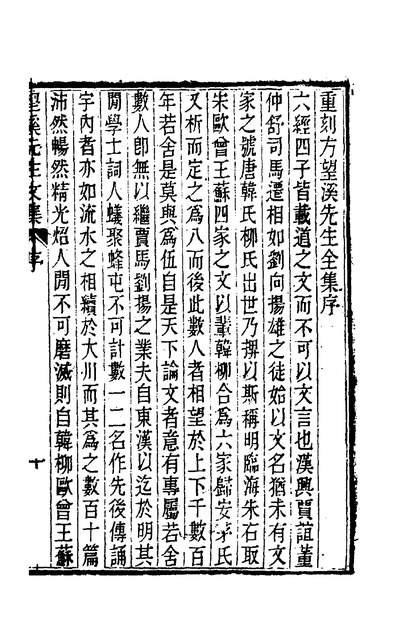 重刻方望溪先生全集序
六經四子皆載道之文而不可以文言也漢興賈誼董
仲舒司馬遷相如劉向揚雄之徒始以文名猶未有文
家之號唐韓氏柳氏出世乃撰以斯稱明臨海朱右取
宋歐曾王蘇四家之文以輩韓柳合為六家歸安茅氏
又析而定之為八而後此數人者相望於上下千數百
年若舍是莫與為伍自是天下論文者意有專屬若舍
數人卽無以繼賈馬劉揚之業夫自東漢以迄於明其
閒學士詞人蟻聚蜂屯不可計數一二名作先後傳誦
宇內者亦如流水之相續於大川而其為之數百十篇
沛然暢然精光炤人閒不可磨滅則自韓柳歐曾王蘇
望溪先生文集 序 十